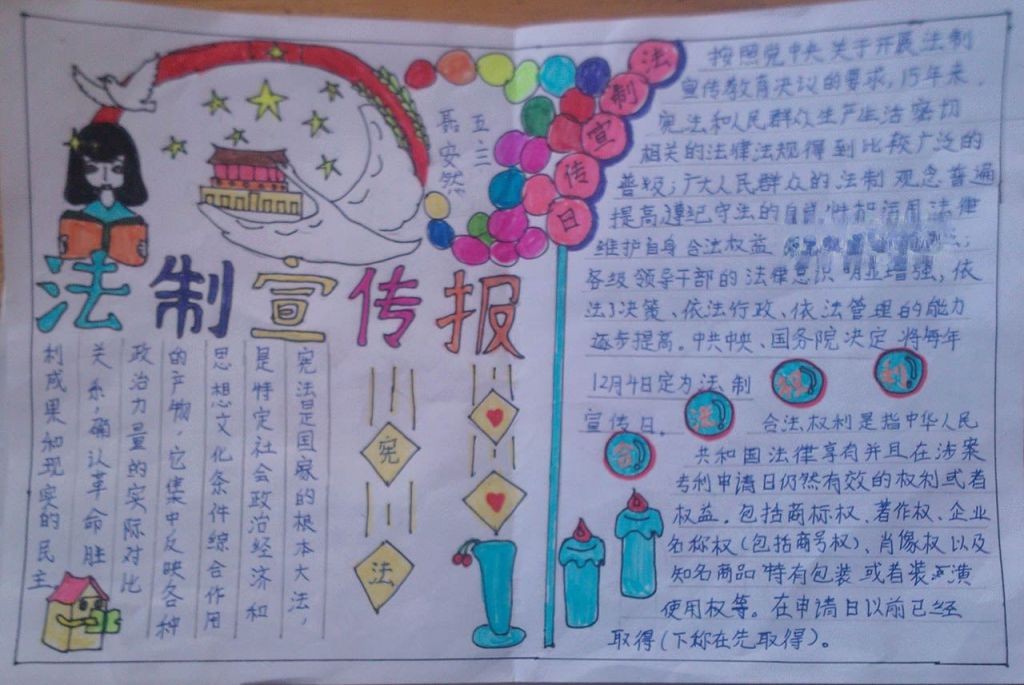 法制宣传报
五三
聂安然
宪法是国家的根本大法，
是特定社会政治经济和
思想文化条件综合作用
的产物，它集中反映各种
政治力量的实际对比
关系，确认革命胜
利成果和现实的民主
宪
法
法制宣传日
按照党中央关于开展法制
宣传教育决议的要求，15年来，
宪法和人民群众生产生活密切
相关的法律法规得到比较广泛的
普及；广大人民群众的法制观念普遍
提高，遵纪守法的自
法律
维护自身合法权益
；
各级领导干部的法律意识明显增强，依
法决策、依法行政、依法管理的能力
逐步提高。中共中央、国务院决定，将每年
12月4日定为法制
宣传日。
合法权利
合法权利是指中华人民
共和国法律享有并且在涉案
专利申请日仍然有效的权利或者
权益。包括商标权、著作权、企业
名称权（包括商号权）、肖像权以及
知名商品特有包装或者装潢
使用权等。在申请日以前已经
取得（下称在先取得）。